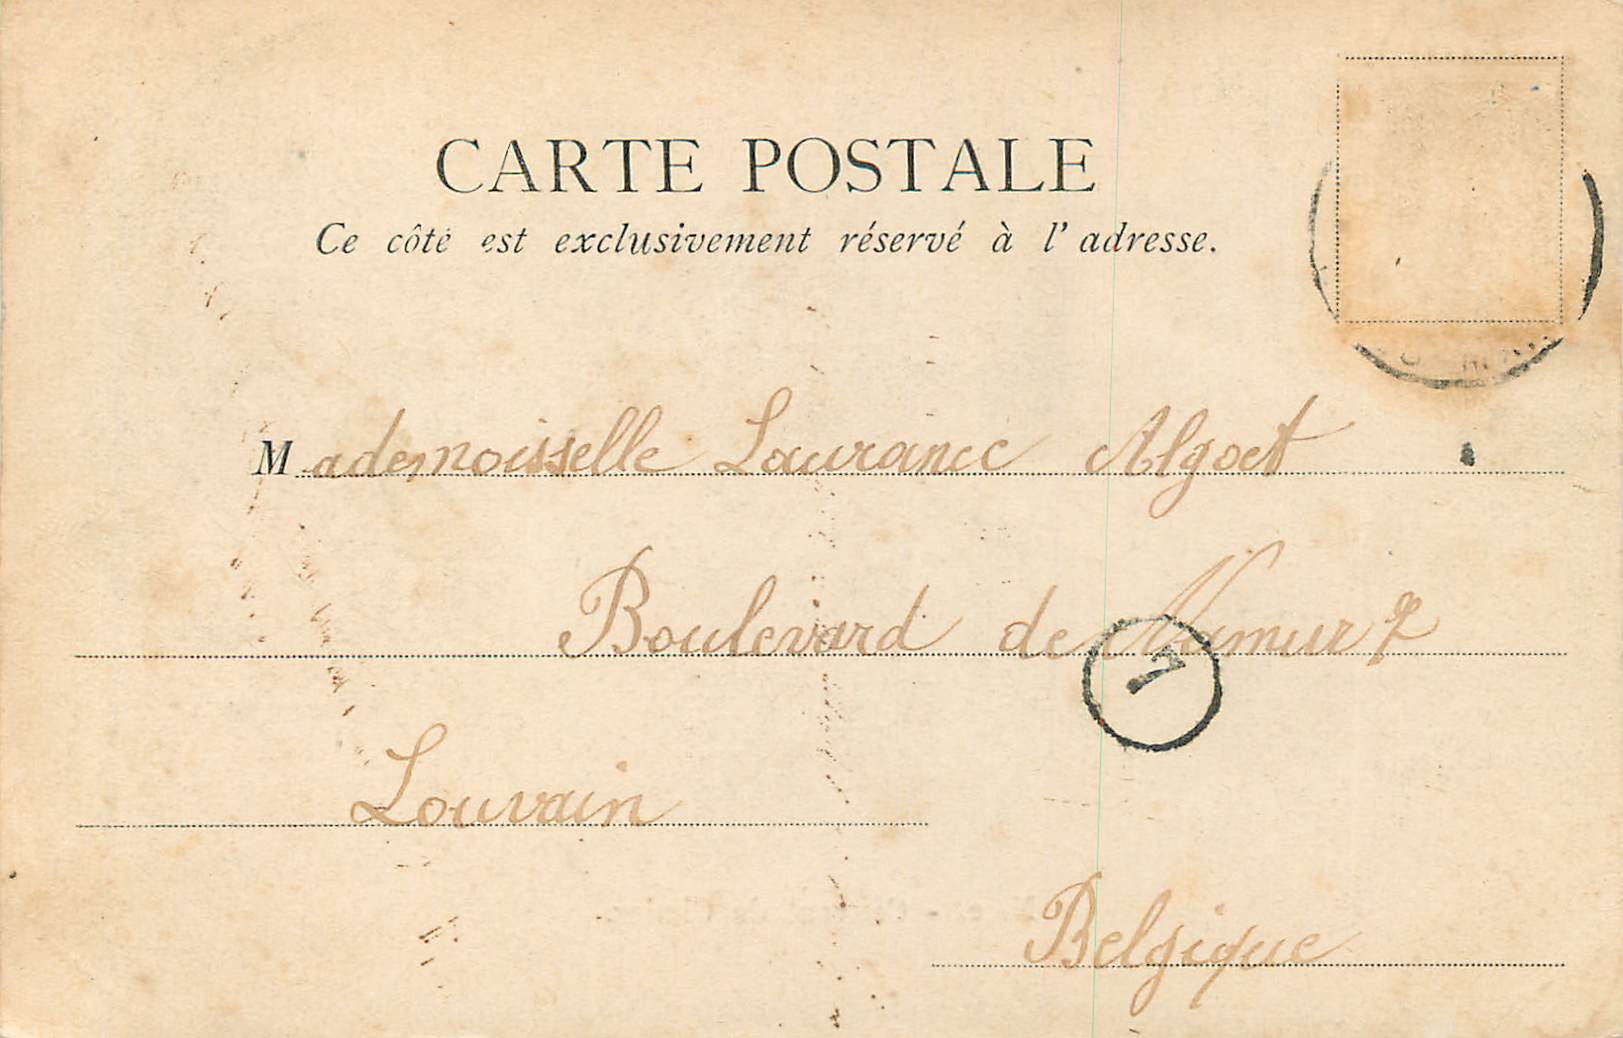 CARTE POSTALE
Ce côté est exclusivement réservé à l'adresse.
Mademoisselle Laurance Algoet
Boulevard de Namur 7
7
Louvain
Belgique